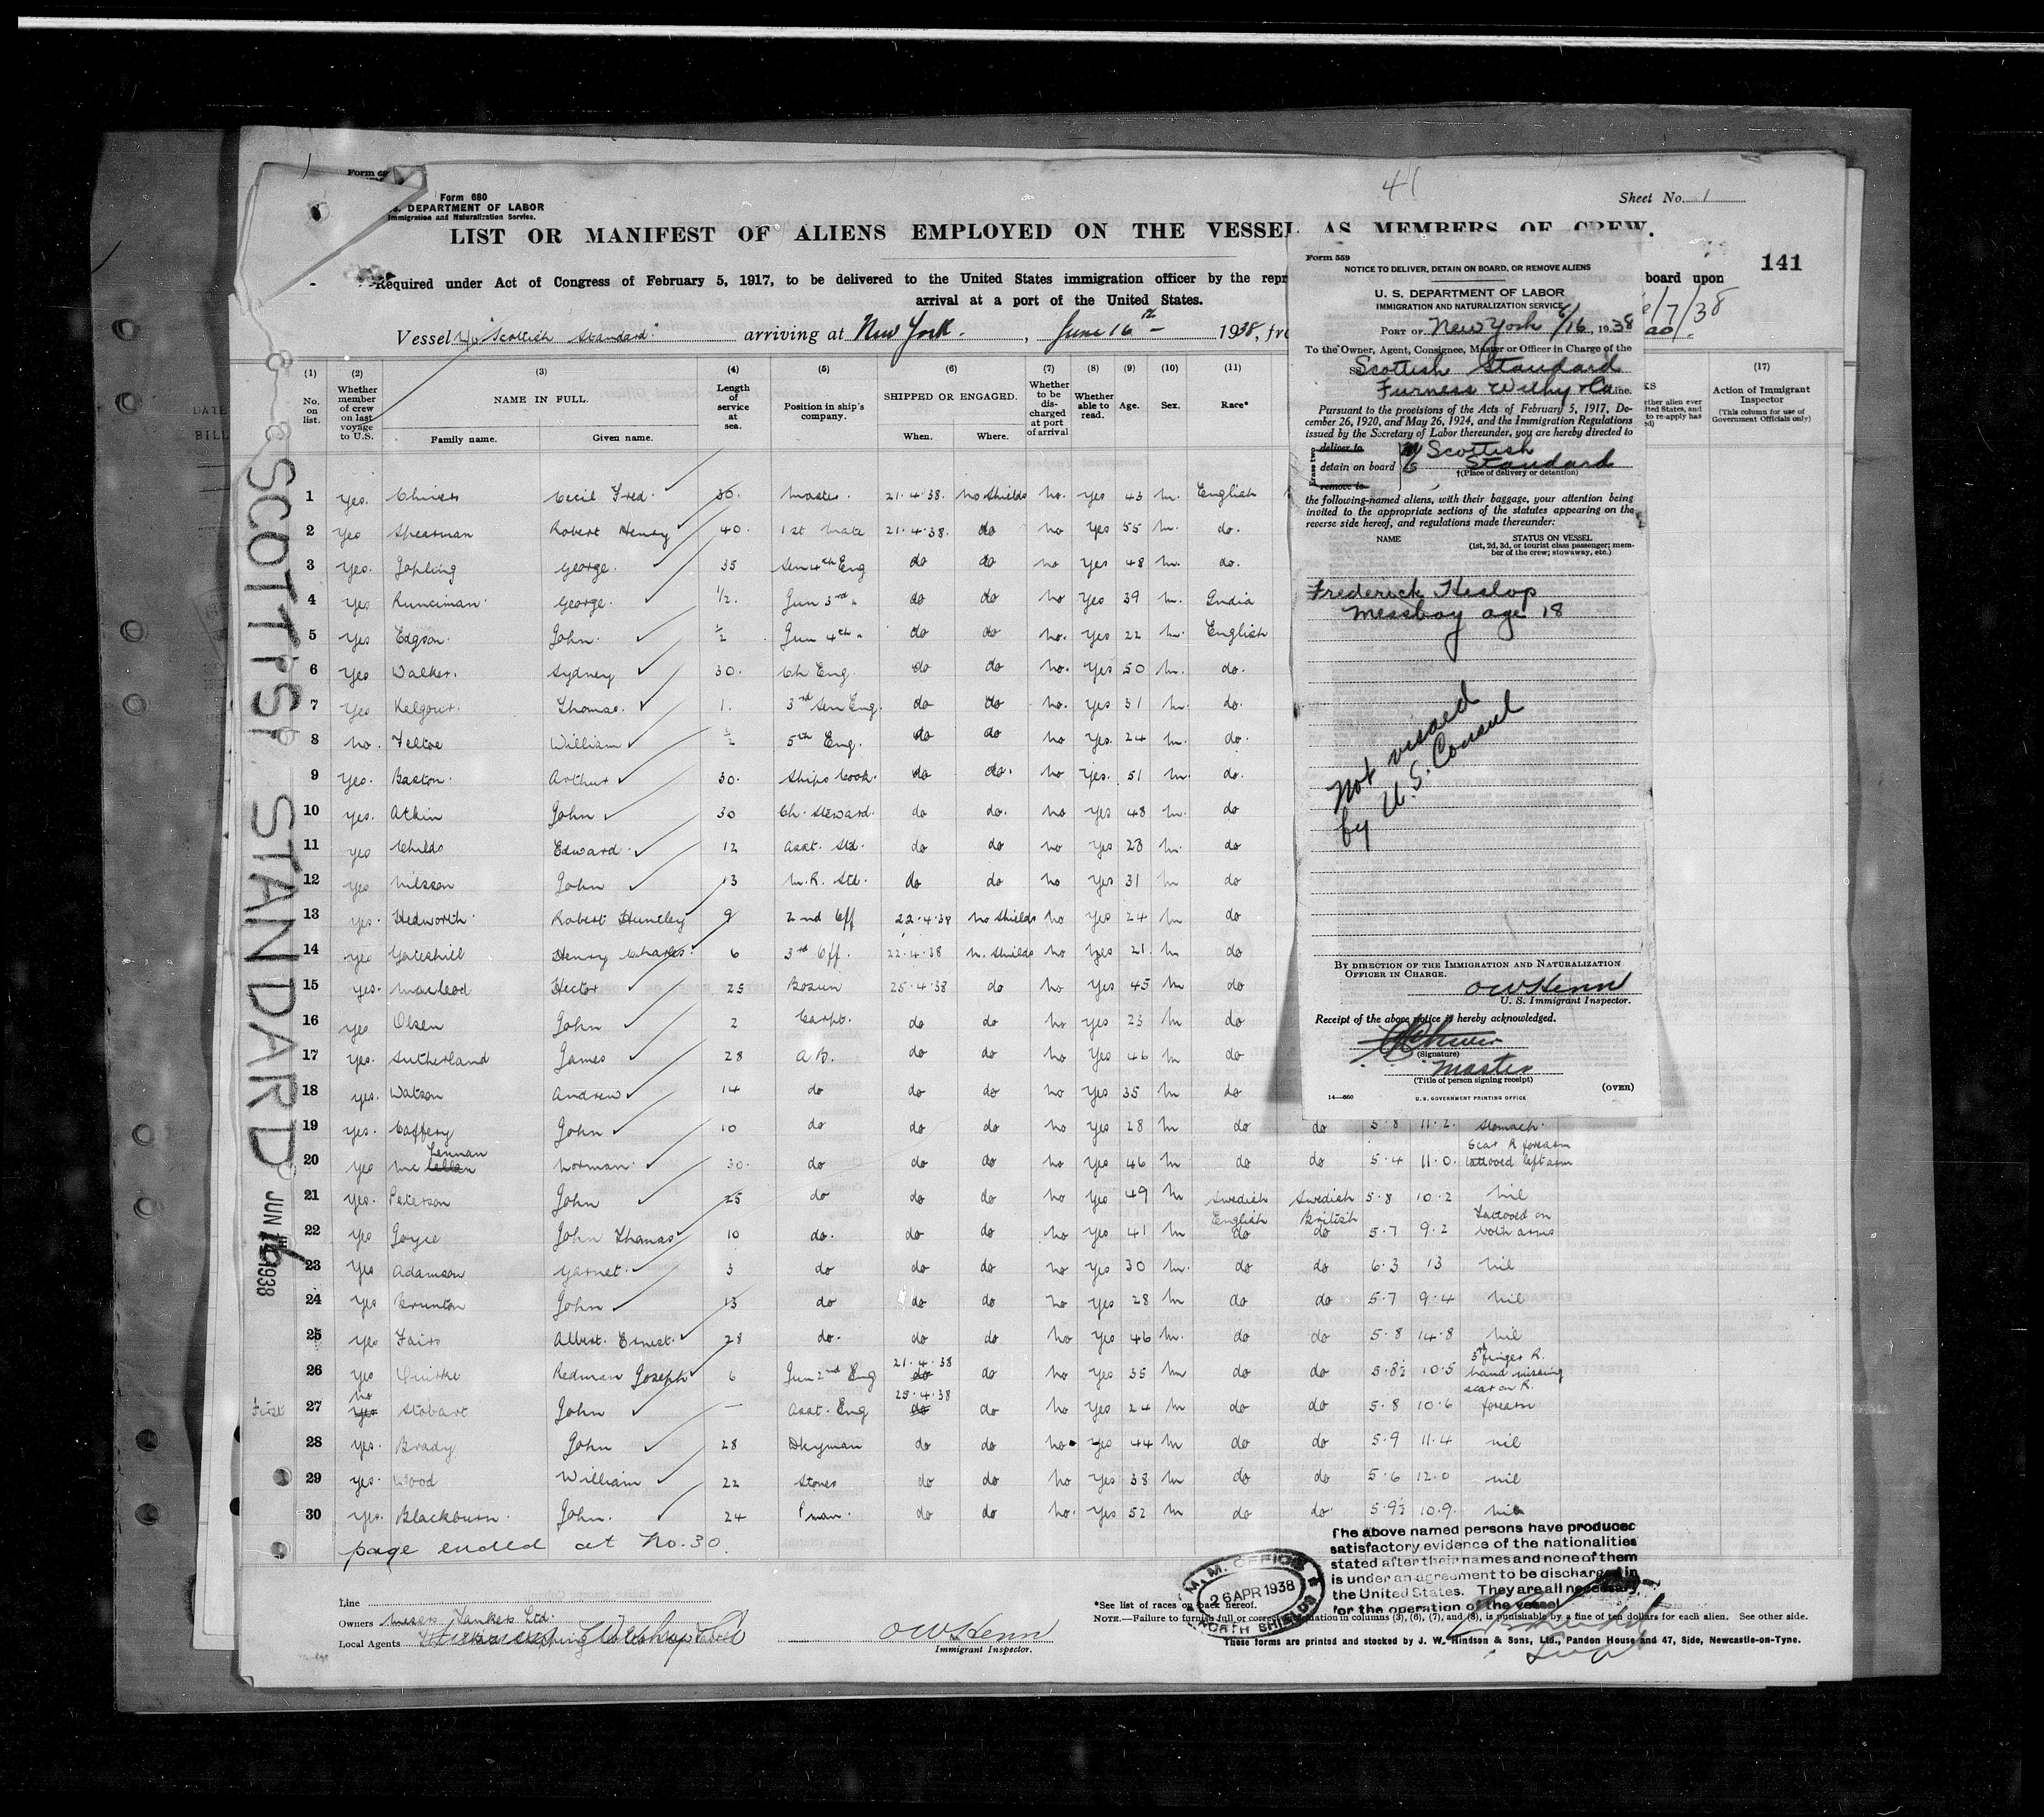 41
Sheet No. 1
Form 680
DEPARTMENT OF LABOR
Immigration and Naturalization Service.
LIST OR MANIFEST OF ALIENS EMPLOYED ON THE VESSEL AS MEMBERS OF CREW.
141
Required under Act of Congress of February 5, 1917, to be delivered to the United States immigration officer by the repr
board upon
arrival at a port of the United States.
/7/38
Vessel "Scottish Standard" arriving at New York. , June 16th 1938, fro
(1) (2) (3) (4) (5) (6) (7) (8) (9) (10) (11) (17)
No. on list.
Whether member of crew on last voyage to U.S.
NAME IN FULL.
Family name. Given name.
Length of service at sea.
Position in ship's company.
SHIPPED OR ENGAGED.
When. Where.
Whether to be discharged at port of arrival
Whether able to read.
Age.
Sex.
Race*
Action of Immigrant Inspector
(This column for use of Government Officials only)
1 Yes. Cecil Fred. 30. Master. 21.4.38. No Shields No. Yes 43 M. English
2 Yes Spearman Robert Henry 40. 1st Mate 21.4.38. do no Yes 55 M. do.
3 Yes. Jopling George. 35 Sen 4th Eng do do no Yes 48 M. do.
4 Yes Runciman George. 1/2. Jun 3rd " do do No Yes 39 M. India
5 Yes Edgson. John. 1/2 Jun 4th " do do No. Yes 22 M. English
6 Yes Walker. Sydney 30. Ch Eng. do do No. Yes 50 M. do.
7 Yes Kelgour. Thomas. 1. 3rd Sen Eng. do do No. Yes 31 M. do.
8 No. Feltoe William 1/2 5th Eng. do do No Yes. 24 M. do.
9 Yes. Baston. Arthur 30. Ships Cook. do do. No Yes. 51 M. do.
10 Yes. Atkin John 30 Ch. Steward. do do. No Yes 48 M. do
11 Yes Childs Edward. 12 Asst. Std. do do no Yes 23 M. do
12 Yes Nilsson John 13 M.R. Std. do do No Yes 31 M do
13 Yes. Hedworth Robert Huntley 9 2nd Off 22.4.38 No Shields No Yes 24 M do
14 Yes Yateshill Henry Charles. 6 3rd Off. 22.4.38 N. Shields No Yes 21. M do
15 Yes. Macleod Hector 25 Bosun 25.4.38 do No Yes 45 M do
16 Yes Olsen John 2 Carpt. do do No Yes 23 M do
17 Yes. Sutherland James 28 A.B. do do No Yes 46 M do
18 Yes. Watson Andrew 14 do do do No Yes 35 M. do
19 Yes. Caffery John 10 do do do No Yes 28 M do do 5.8 11.2. stomach.
20 Yes Mc Lennan Norman. 30. do do do No Yes 46 M do do 5.4 11.0. Scar R forearm tattooed left arm
21 Yes. Peterson John 25 do do do No Yes 49 M Swedish Swedish 5.8 10.2 nil
22 Yes Joyce John Thomas 10 do. do do No Yes 41 M English do British do 5.7 9.2 Tattooed on both arms
23 Yes Adamson Garnet. 3 do do do No Yes 30 M. do do 6.3 13 nil
24 Yes Brunton John 13 do do do No Yes 28 M do do 5.7 9.4 nil
25 Yes Fairs Albert. Ernest. 28 do. do do No Yes 46 M. do do 5.8 14.8 nil
26 Yes Quirke Redman Joseph 6 Jun 2nd Eng 21.4.38 do do No Yes 35 M do do 5.8½ 10.5 5th finger R. hand missing
First 27 no Yes Stobart John — Asst. Eng 25.4.38 do do No Yes 24 M do do 5.8 10.6 scar on R. forearm
28 Yes. Brady John 28 Dkyman do do No. Yes 44 M do do 5.9 11.4 nil
29 Yes. Wood William 22 Stores do do No Yes 38 M do do 5.6 12.0 nil
30 Yes. Blackburn. John. 24 P'man. do do No. Yes 52 M do do. 5.9½ 10.9. nil
page ended at No. 30.
SCOTTISH STANDARD
JUN 16 1938
Form 559
NOTICE TO DELIVER, DETAIN ON BOARD, OR REMOVE ALIENS
U. S. DEPARTMENT OF LABOR
IMMIGRATION AND NATURALIZATION SERVICE
PORT OF New York 6/16, 1938
To the Owner, Agent, Consignee, Master or Officer in Charge of the
SS Scottish Standard
Furness Withy & Co Line.
Pursuant to the provisions of the Acts of February 5, 1917, De-
cember 26, 1920, and May 26, 1924, and the Immigration Regulations
issued by the Secretary of Labor thereunder, you are hereby directed to
deliver to
detain on board M/S Scottish Standard
†(Place of delivery or detention)
remove to
the following-named aliens, with their baggage, your attention being
invited to the appropriate sections of the statutes appearing on the
reverse side hereof, and regulations made thereunder:
NAME STATUS ON VESSEL
(1st, 2d, 3d, or tourist class passenger; mem-
ber of the crew; stowaway, etc.)
Frederick Heslop
Messboy age 18
Not visaed
by U.S. Consul
BY DIRECTION OF THE IMMIGRATION AND NATURALIZATION
OFFICER IN CHARGE.
OW Henn
U. S. Immigrant Inspector.
Receipt of the above notice is hereby acknowledged.
(Signature)
Master
(Title of person signing receipt)
(OVER)
14—660 U.S. GOVERNMENT PRINTING OFFICE
The above named persons have produced
satisfactory evidence of the nationalities
stated after their names and none of them
is under an agreement to be discharged in
the United States. They are all necessary
for the operation of the vessel
M.M. OFFICE
26 APR 1938
NORTH SHIELDS
Line
Owners Messrs Tankers Ltd.
Local Agents
OW Henn
Immigrant Inspector.
*See list of races on back hereof.
NOTE.—Failure to furnish full or correct information in columns (3), (6), (7), and (8), is punishable by a fine of ten dollars for each alien. See other side.
These forms are printed and stocked by J. W. Hindson & Sons, Ltd., Pandon House and 47, Side, Newcastle-on-Tyne.